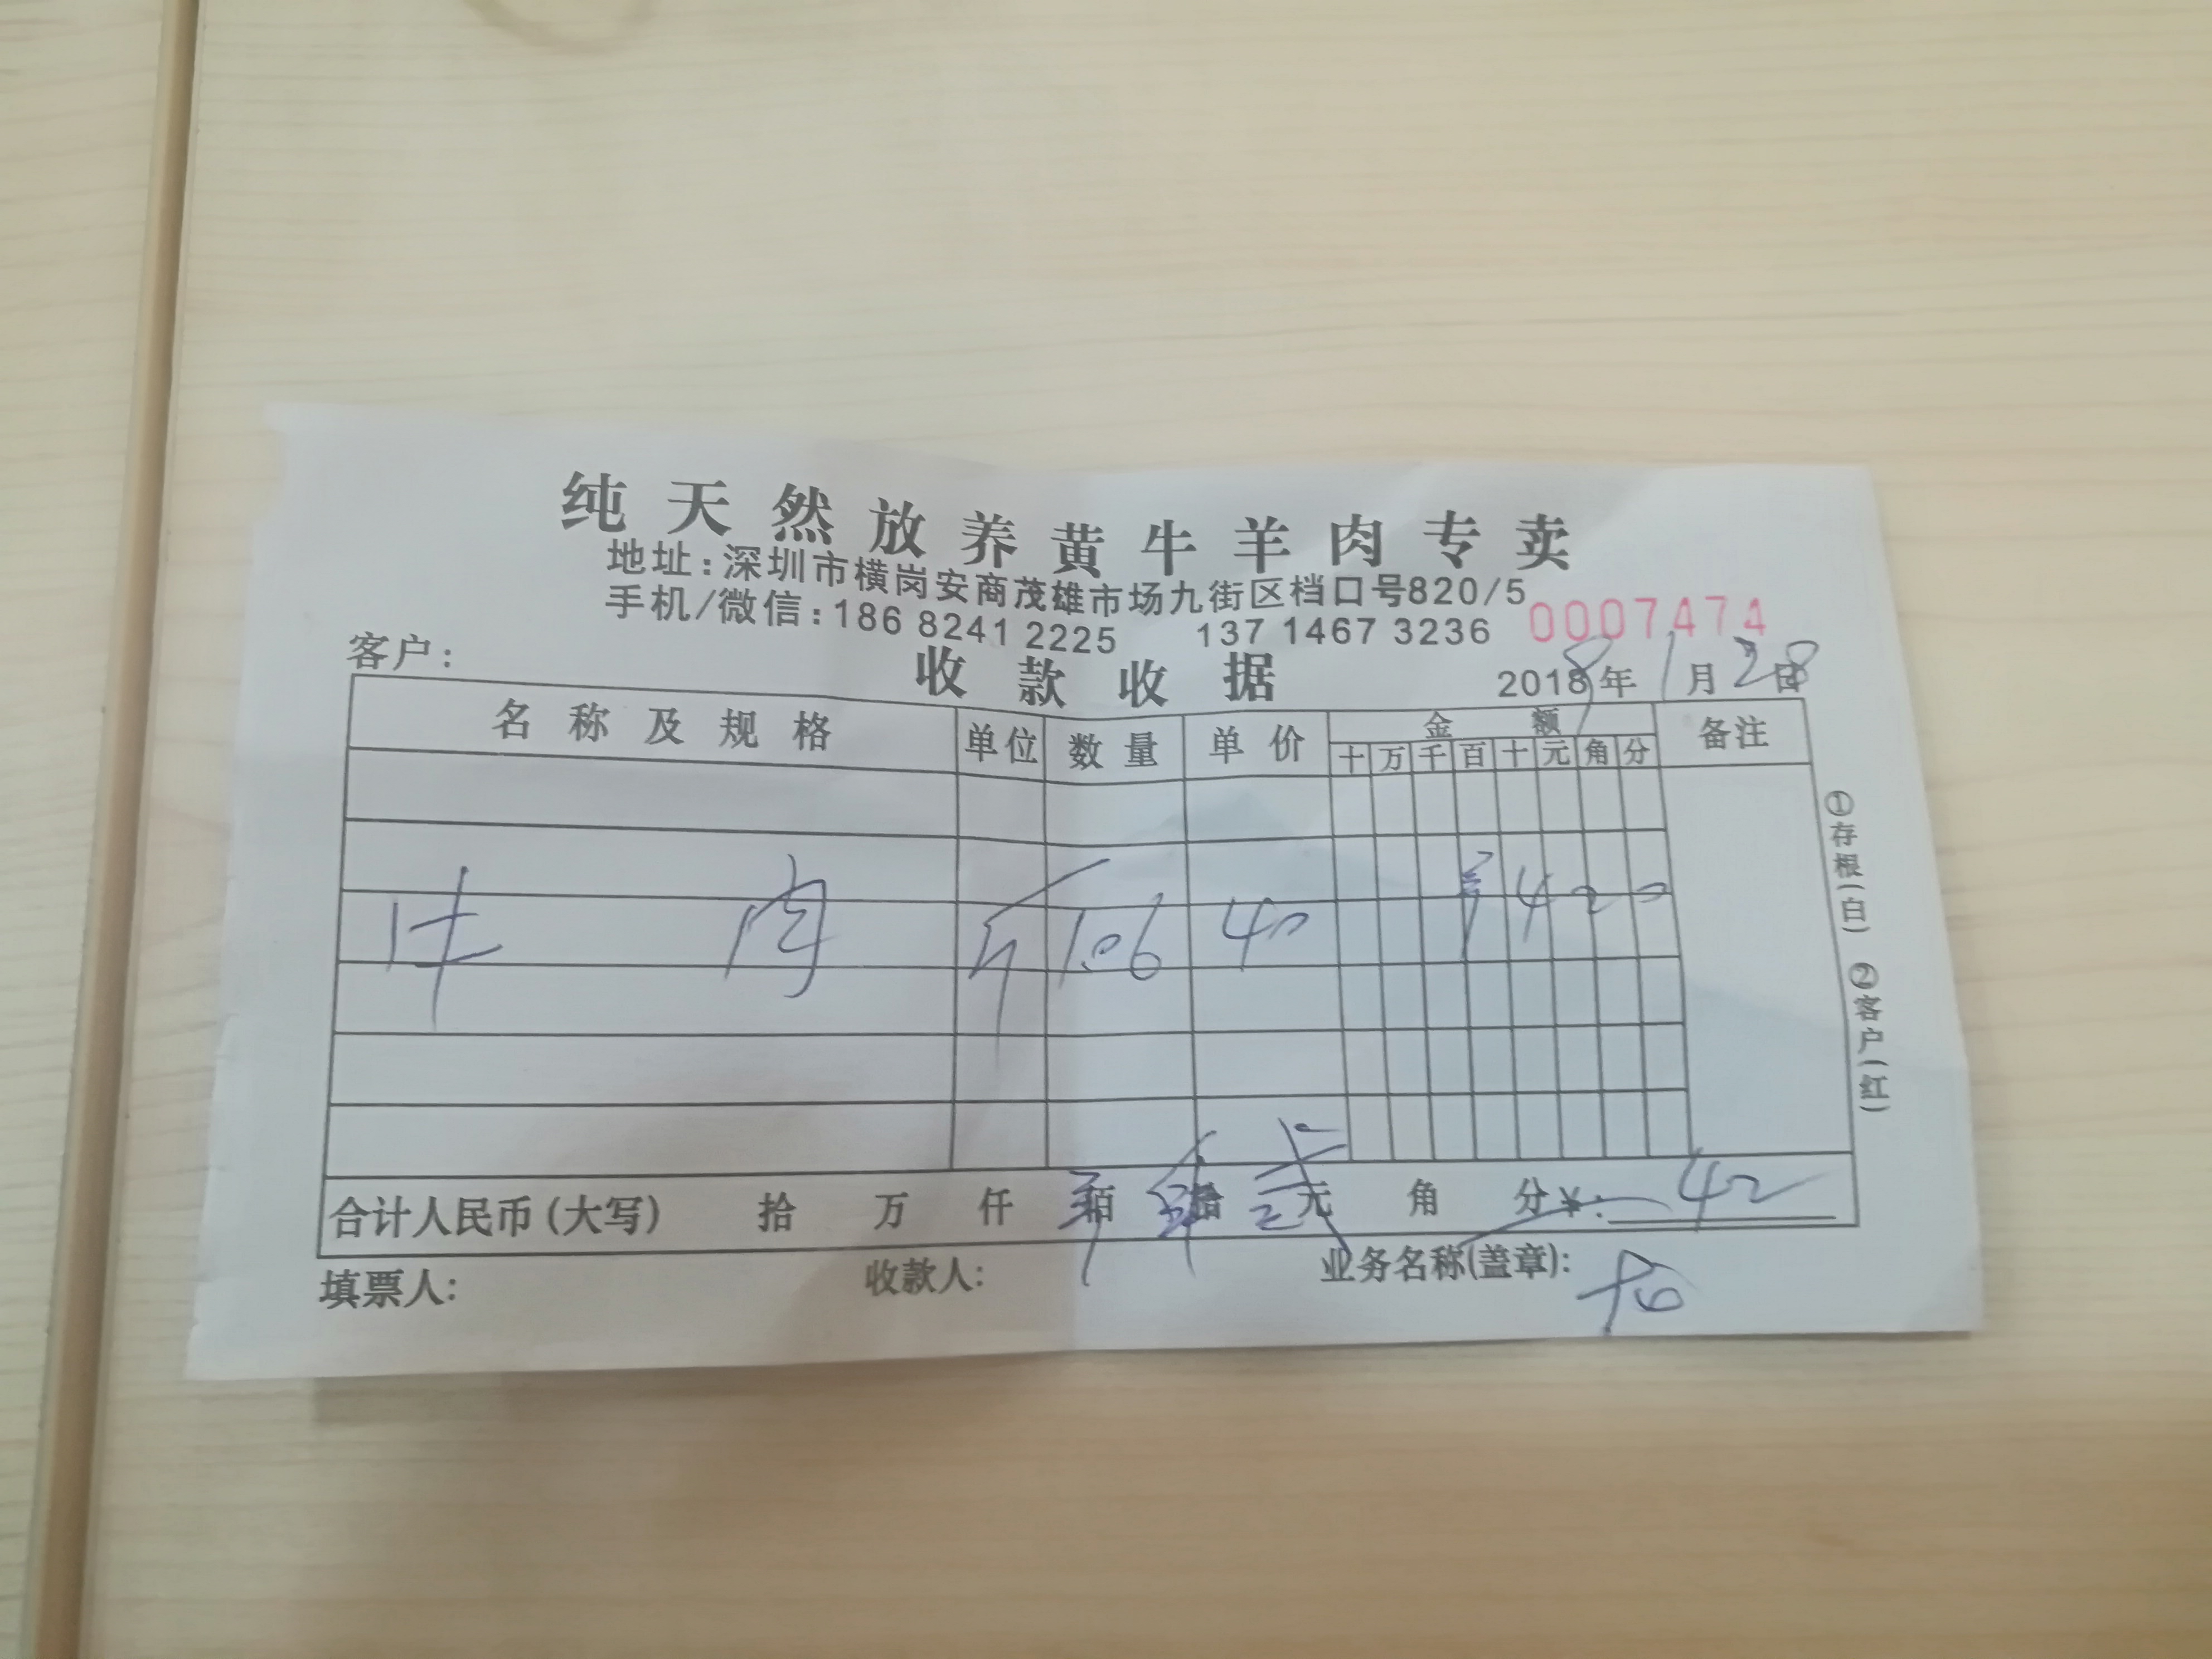 纯天然放养黄牛羊肉专卖
地址：深圳市横岗安商茂雄市场九街区档口号820/5
手机/微信：186 8241 2225 137 1467 3236
0007474
客户：
收款收据
2018年1月28日
名称及规格 单位 数量 单价 金额 备注
十 万 千 百 十 元 角 分
牛 肉 斤 1.06 40 4 2 0
合计人民币(大写) 拾 万 仟 佰 拾 元 角 分¥： 42
填票人： 收款人： 业务名称(盖章)：
①存根(白) ②客户(红)